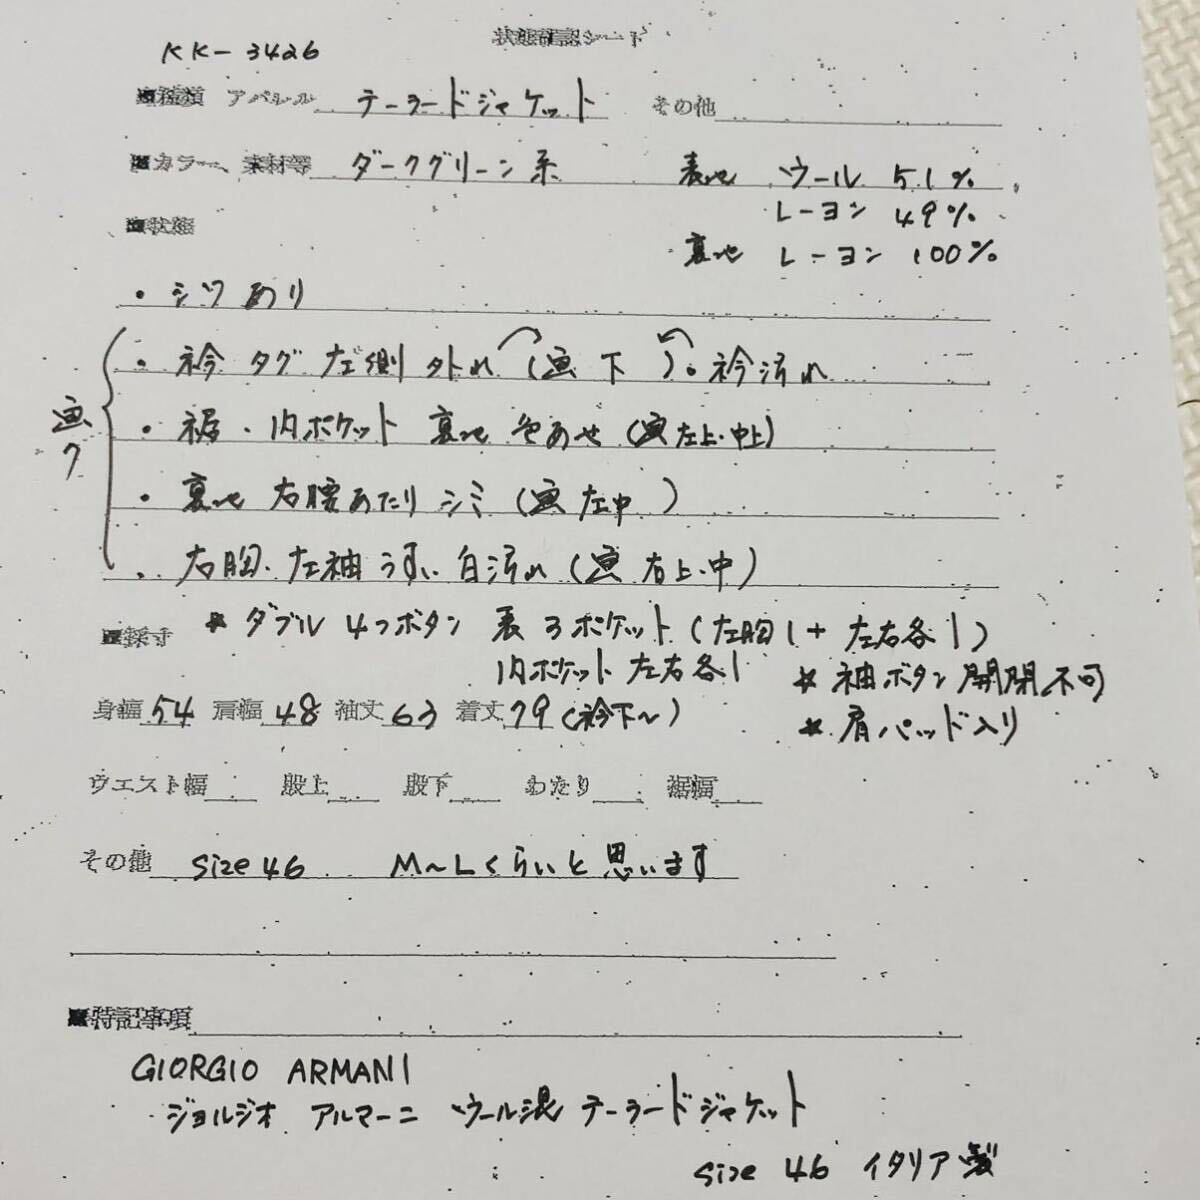 KK-3426
状態確認シート
■種類 アパレル テーラードジャケット その他
■カラー、素材等 ダークグリーン系 表地 ウール 51%
レーヨン 49%
裏地 レーヨン 100%
■状態
・シワあり
・衿タグ左側外れ(画下)・衿汚れ
・裾・内ポケット裏地色あせ(画左上・中上)
画7
・裏地右腰あたりシミ(画左中)
・右胸・左袖うすい白汚れ(画右上・中)
■採寸 *ダブル4つボタン 表3ポケット(左胸1+左右各1)
内ポケット左右各1 *袖ボタン開閉不可
身幅54 肩幅48 袖丈63 着丈79(衿下~) *肩パッド入り
ウエスト幅 股上 股下 わたり 裾幅
その他 size 46 M~Lくらいと思います
■特記事項
GIORGIO ARMANI
ジョルジオ アルマーニ ウール混 テーラードジャケット
size 46 イタリア製